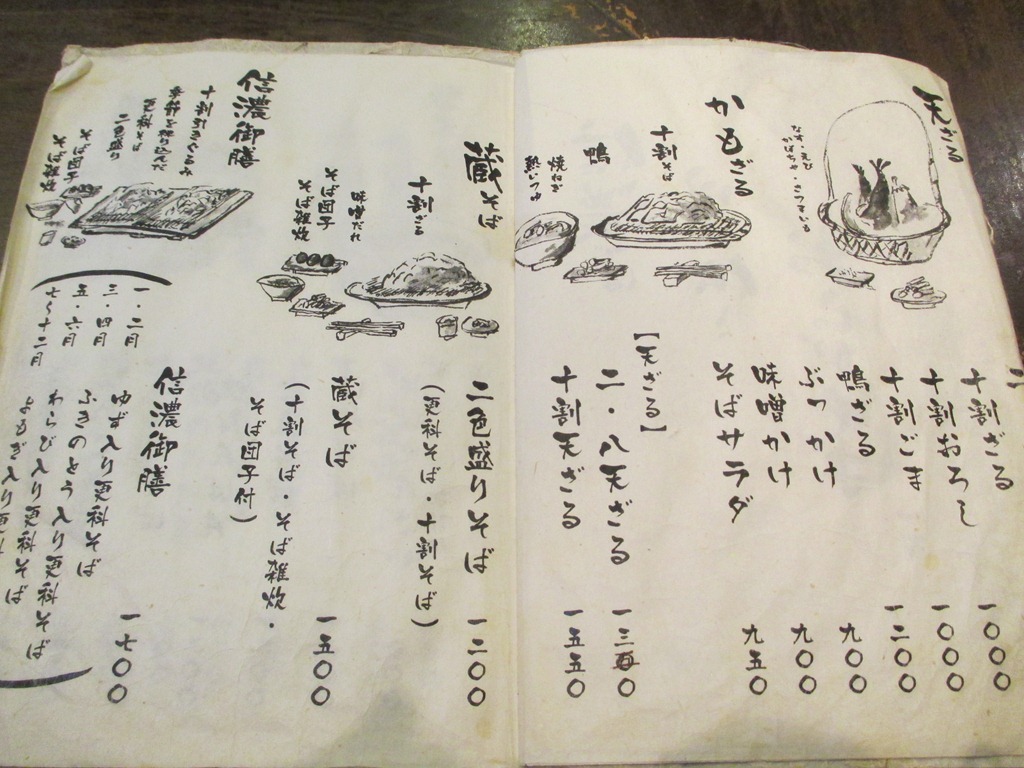 天ざる
なす・えび
かぼちゃ・さつまいも
かもざる
十割そば
鴨
焼ねぎ
熱いつゆ
二
十割ざる 一〇〇〇
十割おろし 一〇〇〇
十割ごま 一二〇〇
鴨ざる 九〇〇
ぶっかけ
味噌かけ 九〇〇
そばサラダ 九五〇
【天ざる】
二・八天ざる 一三五〇
十割天ざる 一五五〇
蔵そば
十割ざる
味噌だれ
そば団子
そば雑炊
信濃御膳
十割おろしくるみ
更科そば
二色盛り
そば団子
そば雑炊
二色盛りそば 一二〇〇
(更科そば・十割そば)
蔵そば 一五〇〇
(十割そば・そば雑炊・
そば団子付)
信濃御膳 一七〇〇
一・二月 ゆず入り更科そば
三・四月 ふきのとう入り更科そば
五・六月 わらび入り更科そば
七〜十二月 よもぎ入り更科そば